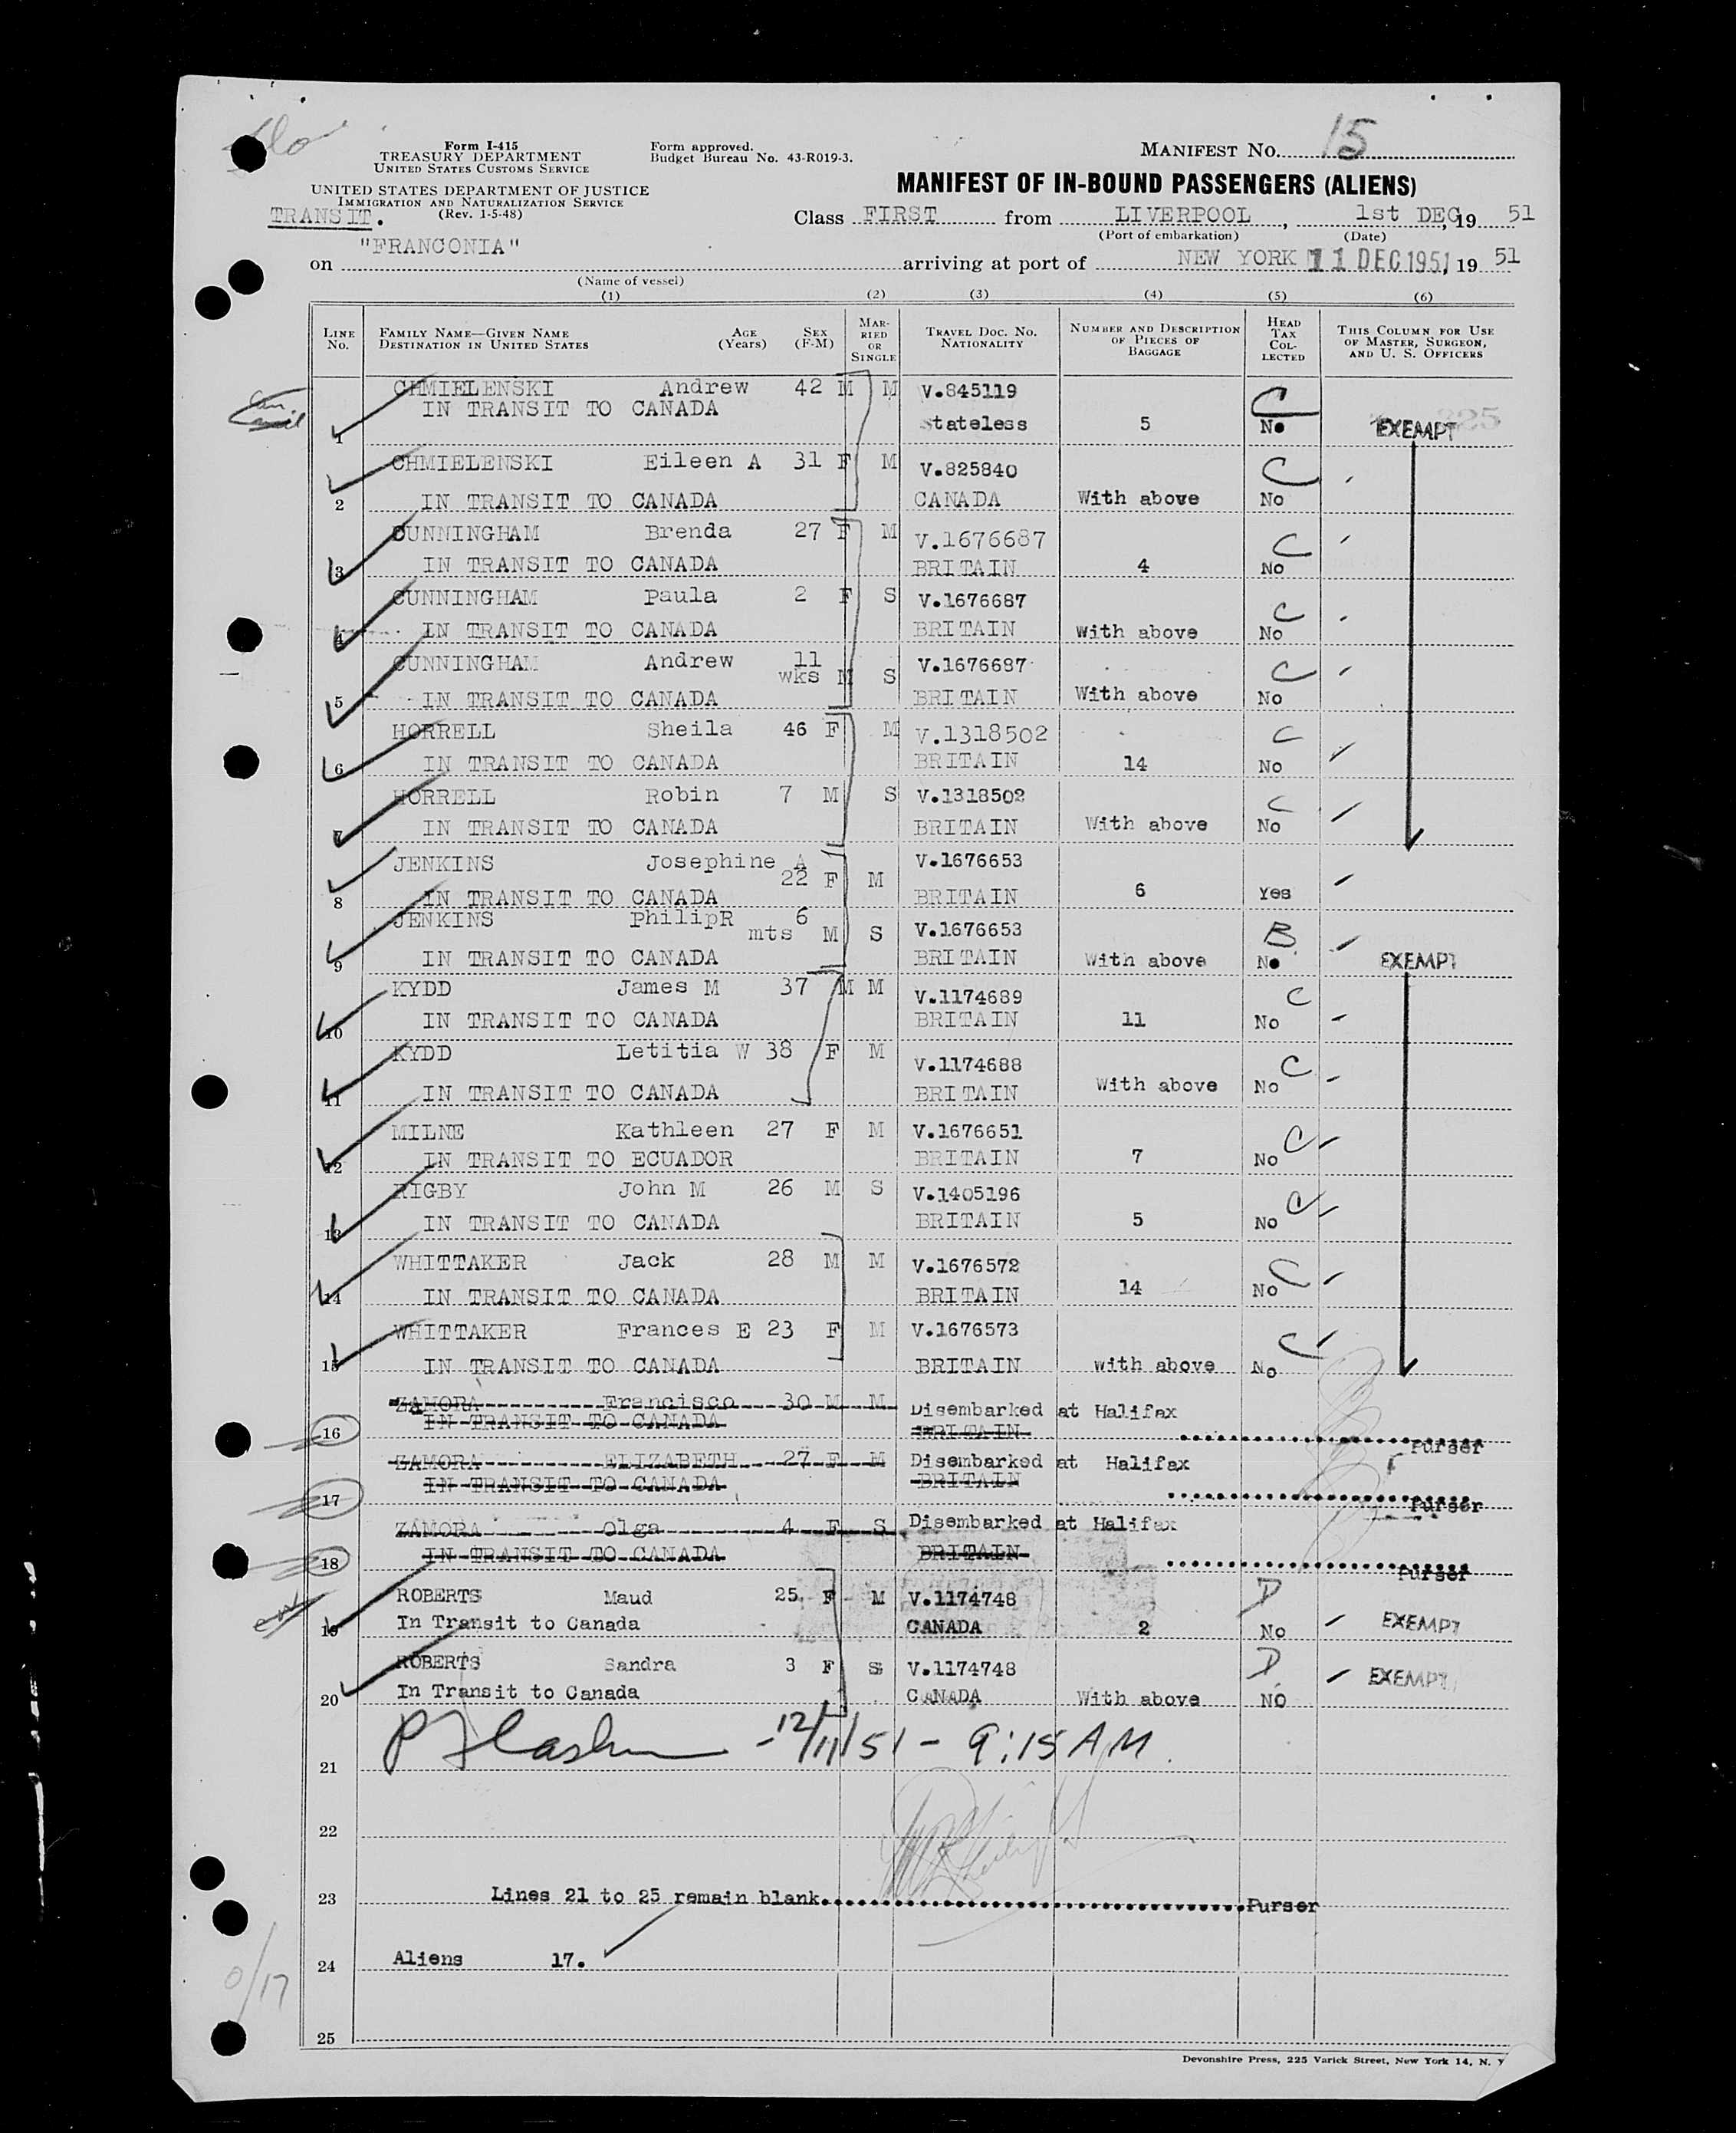 Form I-415
TREASURY DEPARTMENT
UNITED STATES CUSTOMS SERVICE
UNITED STATES DEPARTMENT OF JUSTICE
IMMIGRATION AND NATURALIZATION SERVICE
(Rev. 1-5-48)
TRANSIT.
Form approved.
Budget Bureau No. 43-R019-3.
MANIFEST NO. 15
MANIFEST OF IN-BOUND PASSENGERS (ALIENS)
Class FIRST from LIVERPOOL, 1st DEC, 19 51
(Port of embarkation) (Date)
on "FRANCONIA" arriving at port of NEW YORK 11 DEC 1951, 19 51
(Name of vessel)
(1) (2) (3) (4) (5) (6)
LINE NO. FAMILY NAME—GIVEN NAME DESTINATION IN UNITED STATES AGE (Years) SEX (F-M) MARRIED OR SINGLE TRAVEL DOC. NO. NATIONALITY NUMBER AND DESCRIPTION OF PIECES OF BAGGAGE HEAD TAX COLLECTED THIS COLUMN FOR USE OF MASTER, SURGEON, AND U. S. OFFICERS
CHMIELENSKI Andrew 42 M M V.845119 C
1 IN TRANSIT TO CANADA Stateless 5 No EXEMPT
CHMIELENSKI Eileen A 31 F M V.825840 C
2 IN TRANSIT TO CANADA CANADA With above No
CUNNINGHAM Brenda 27 F M V.1676687 C
3 IN TRANSIT TO CANADA BRITAIN 4 No
CUNNINGHAM Paula 2 F S V.1676687 C
4 IN TRANSIT TO CANADA BRITAIN With above No
CUNNINGHAM Andrew 11 wks M S V.1676687 C
5 IN TRANSIT TO CANADA BRITAIN With above No
HORRELL Sheila 46 F M V.1318502 C
6 IN TRANSIT TO CANADA BRITAIN 14 No
HORRELL Robin 7 M S V.1318502 C
7 IN TRANSIT TO CANADA BRITAIN With above No
JENKINS Josephine A 22 F M V.1676653
8 IN TRANSIT TO CANADA BRITAIN 6 Yes
JENKINS PhilipR 6 mts M S V.1676653 B
9 IN TRANSIT TO CANADA BRITAIN With above No EXEMPT
KYDD James M 37 M M V.1174689 C
10 IN TRANSIT TO CANADA BRITAIN 11 No
KYDD Letitia W 38 F M V.1174688 C
11 IN TRANSIT TO CANADA BRITAIN With above No
MILNE Kathleen 27 F M V.1676651 C
12 IN TRANSIT TO ECUADOR BRITAIN 7 No
RIGBY John M 26 M S V.1405196 C
13 IN TRANSIT TO CANADA BRITAIN 5 No
WHITTAKER Jack 28 M M V.1676572 C
14 IN TRANSIT TO CANADA BRITAIN 14 No
WHITTAKER Frances E 23 F M V.1676573 C
15 IN TRANSIT TO CANADA BRITAIN with above No
ZAMORA Francisco 30 M M Disembarked at Halifax
16 IN TRANSIT TO CANADA BRITAIN Purser
ZAMORA ELIZABETH 27 F M Disembarked at Halifax
17 IN TRANSIT TO CANADA BRITAIN Purser
ZAMORA Olga 4 F S Disembarked at Halifax
18 IN TRANSIT TO CANADA BRITAIN Purser
ROBERTS Maud 25 F M V.1174748 D
19 In Transit to Canada CANADA 2 No EXEMPT
ROBERTS Sandra 3 F S V.1174748 D
20 In Transit to Canada CANADA With above NO EXEMPT
21 -12/11/51 - 9:15 AM.
22
23 Lines 21 to 25 remain blank Purser
24 Aliens 17.
0/17
25
Devonshire Press, 225 Varick Street, New York 14, N. Y